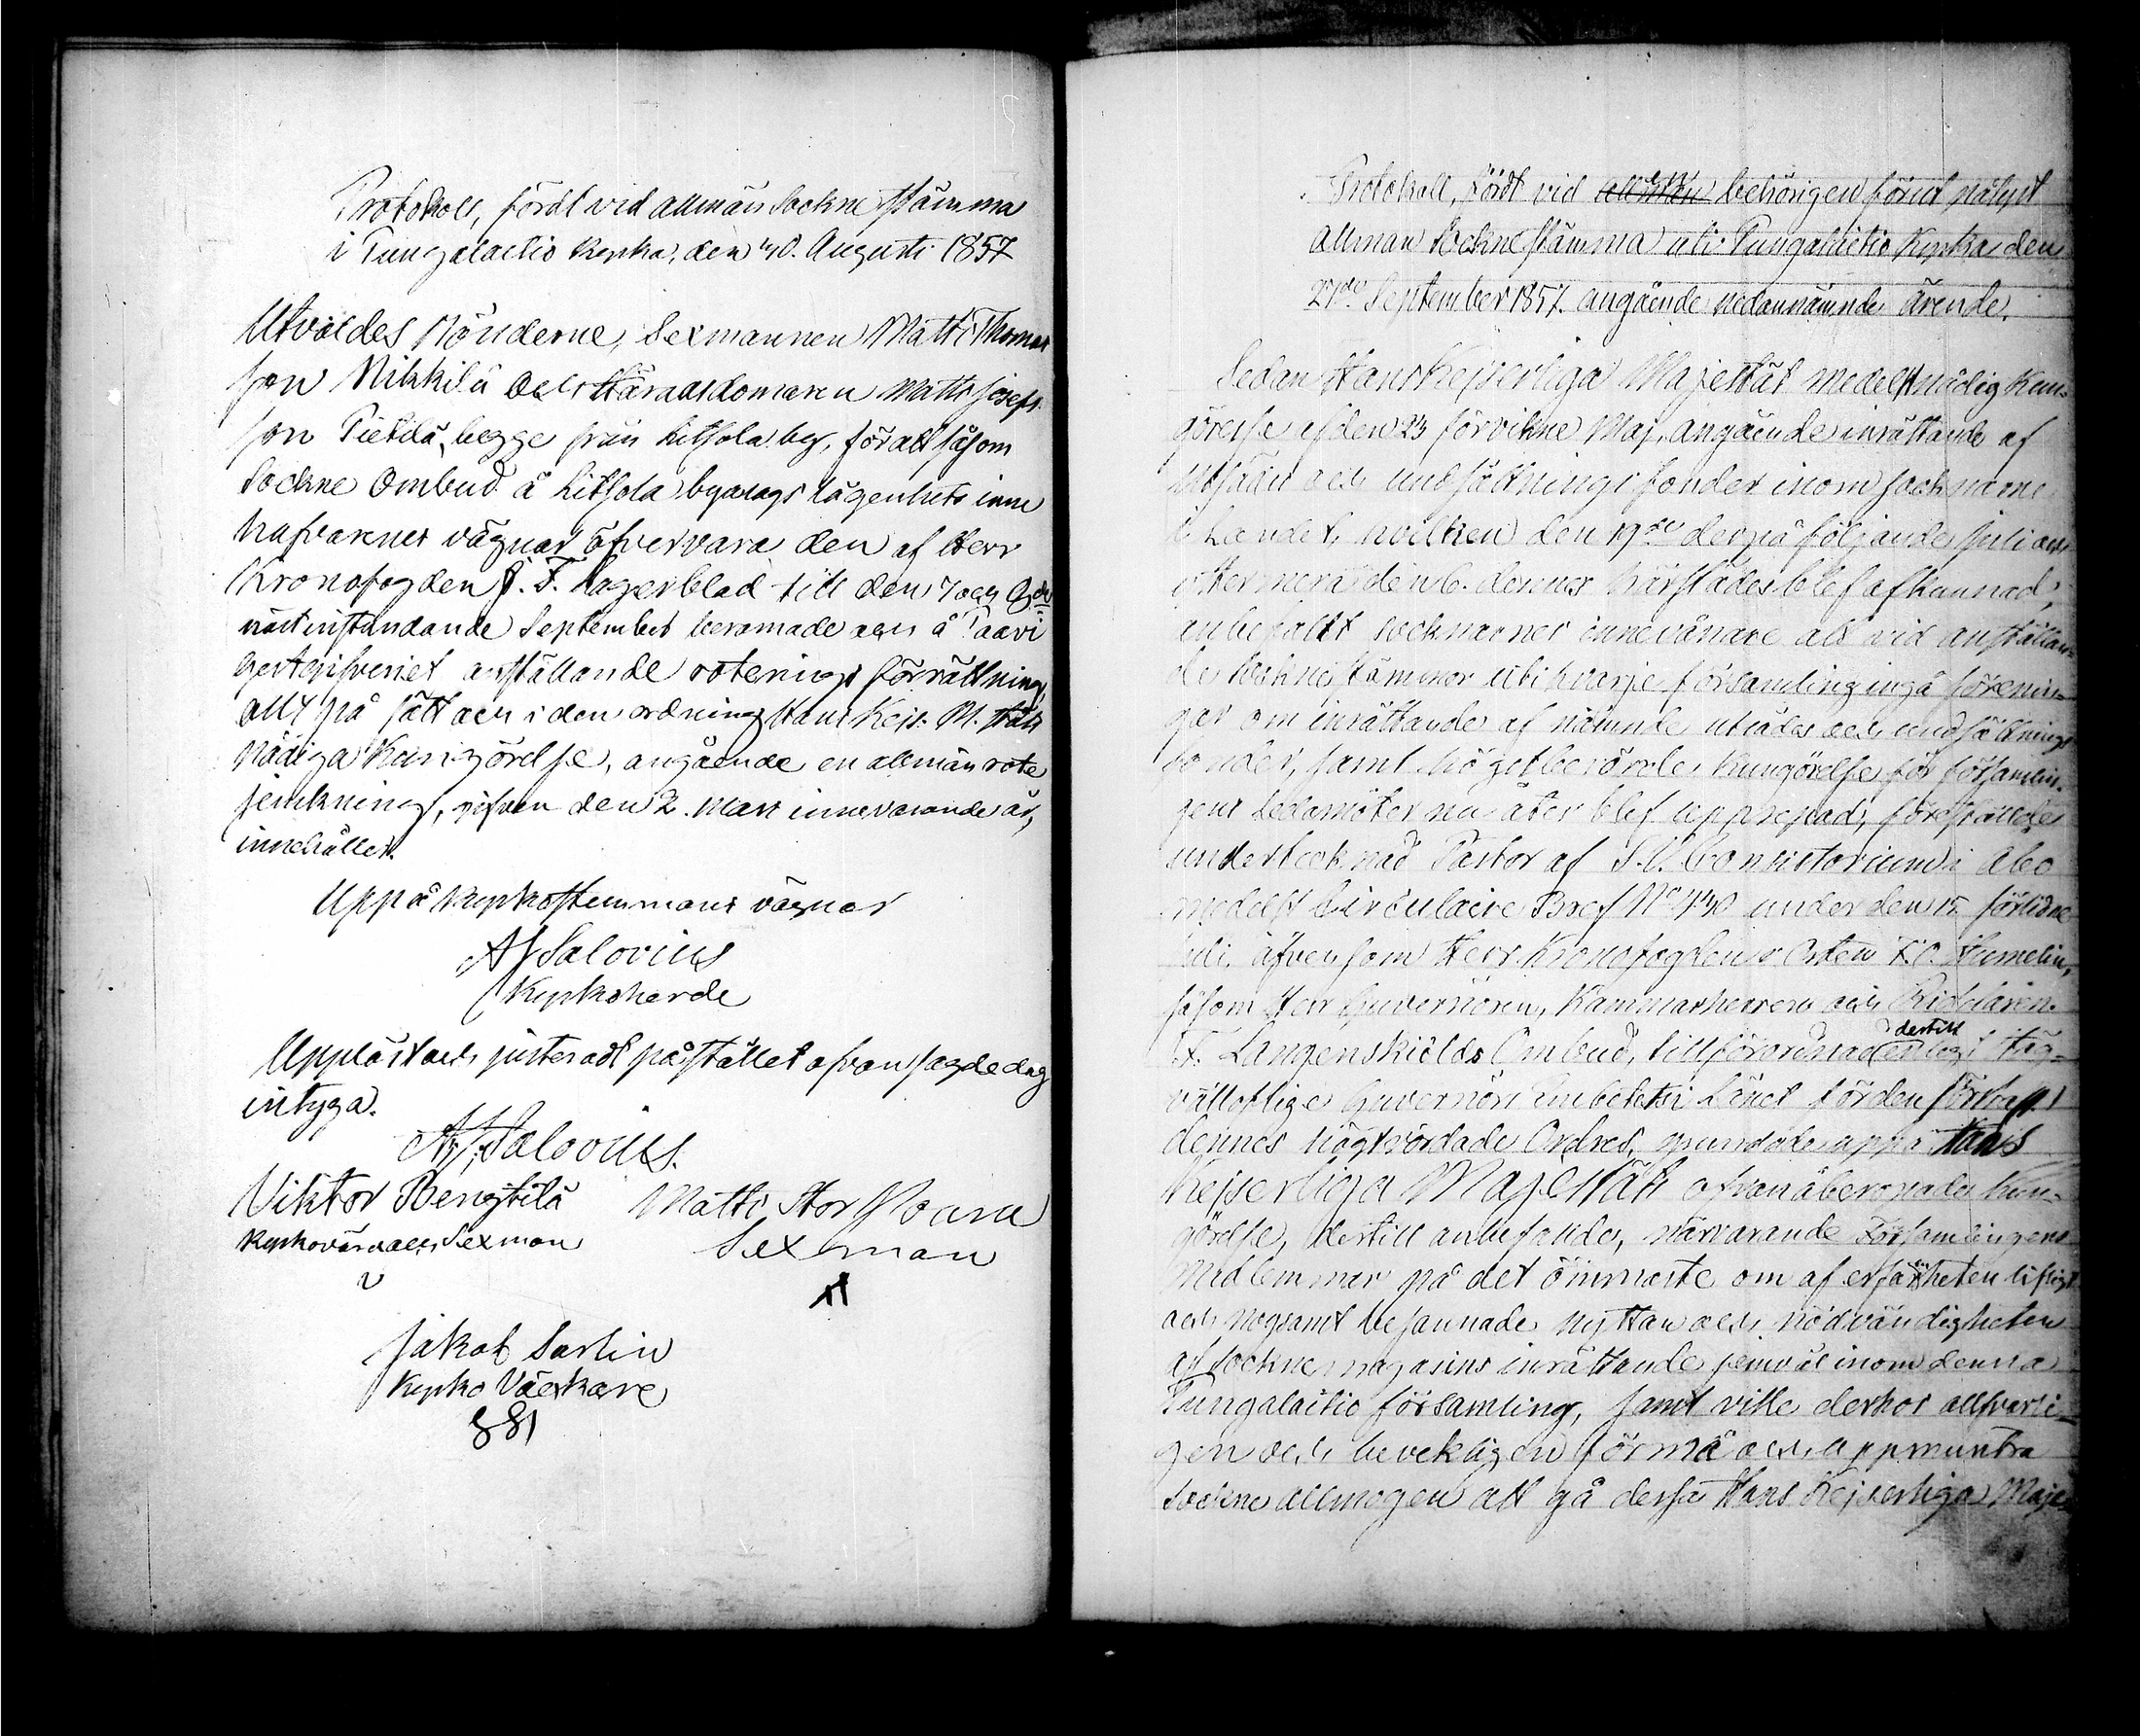 Protokoll, fördt vid allmän Sockne stämma
i Pungalaitio kyrka, den 30. Augusti 1857
Utvaldes Bönderne, Sexmannen Matti Thomas
son Nikkilä och Häradsdomaren Matts Josefs
son Pietilä, begge från Kitsola by, för att såsom
Sockne Ombud å Kitsola byarags lägenhets inne
hafvarenes vägnar öfvervara den af Herr
Kronofogden J. F. Lagerblad till den 7 och 8de
nästinstundande September beramade och å Paavi
gestgifveriet anställande roterings förrättning,
allt på sätt och i den ordning Hans Kejs. M. Häts
Nådiga Kungörelse, angående en allmän rote
jemkning, gifven den 2. Mars innevarande år,
innehåller.
Uppå kyrkostemmans vägnar
A J Salovius
Kyrkoherde
Uppläst och justeradt på stället ofvansagde dag
intyga.
A. J. Salovius.
Viktor Bengtilä Matti Stor
Kyrkovärd och Sexman Sexman
Jakob Sarlin
Kyrko Väktare
Protokoll, fördt vid allmän behörigen förut pålyst
allmän Sockne stämma uti Pungalaitio Kyrka den
27de September 1857. angående nedannämnde ärende.
Sedan Hans Kejserliga Majestät medelst nådig Kun-
görelse af den 23 förvikne Maj, angående inrättande af
utsädes och undsättnings fonder inom socknarne
i Landet, hvilken den 19de derpå följande Juli och
ytter mera den 6. dennes härstädes blef afkunnad,
anbefallt socknarnes innevånare att vid anställan-
de sockne stämmor uti hvarje församling ingå förenin-
gar om inrättande af nämnde utsädes och undsättnings
fonder, samt högstberörde Kungörelse för församlin-
gens Ledamöter nu åter blef upprepad, föreställde
undertecknad Pastor af S. V. Consistorium i Åbo
medelst Circulaire Bref No 440 under den 15 förlidne
Juli, äfvensom Herr Kronofogden
såsom Herr Guvernören, Kammarherren och Riddaren
F. Langenskiölds Ombud, tillförordnad dertill
välloflige Guvernörs Embetet i Länet
dennes högtvördade Ordres, grundade uppå Hans
Kejserliga Majestäts ofvanåberopade Kun-
görelse, dertill anbefallde, närvarande Församlingens
Medlemmar på det ömmaste om af erfarenheten lifligt
och nogsamt besannade nyttan och nödvändigheten
af sockne magasins inrättande jemväl inom denna
Pungalaitio församling, samt ville derhos allvarli-
gen och bevekligen förmå och uppmuntra
Sockne allmogen att gå dessa Hans Kejserliga Maje-